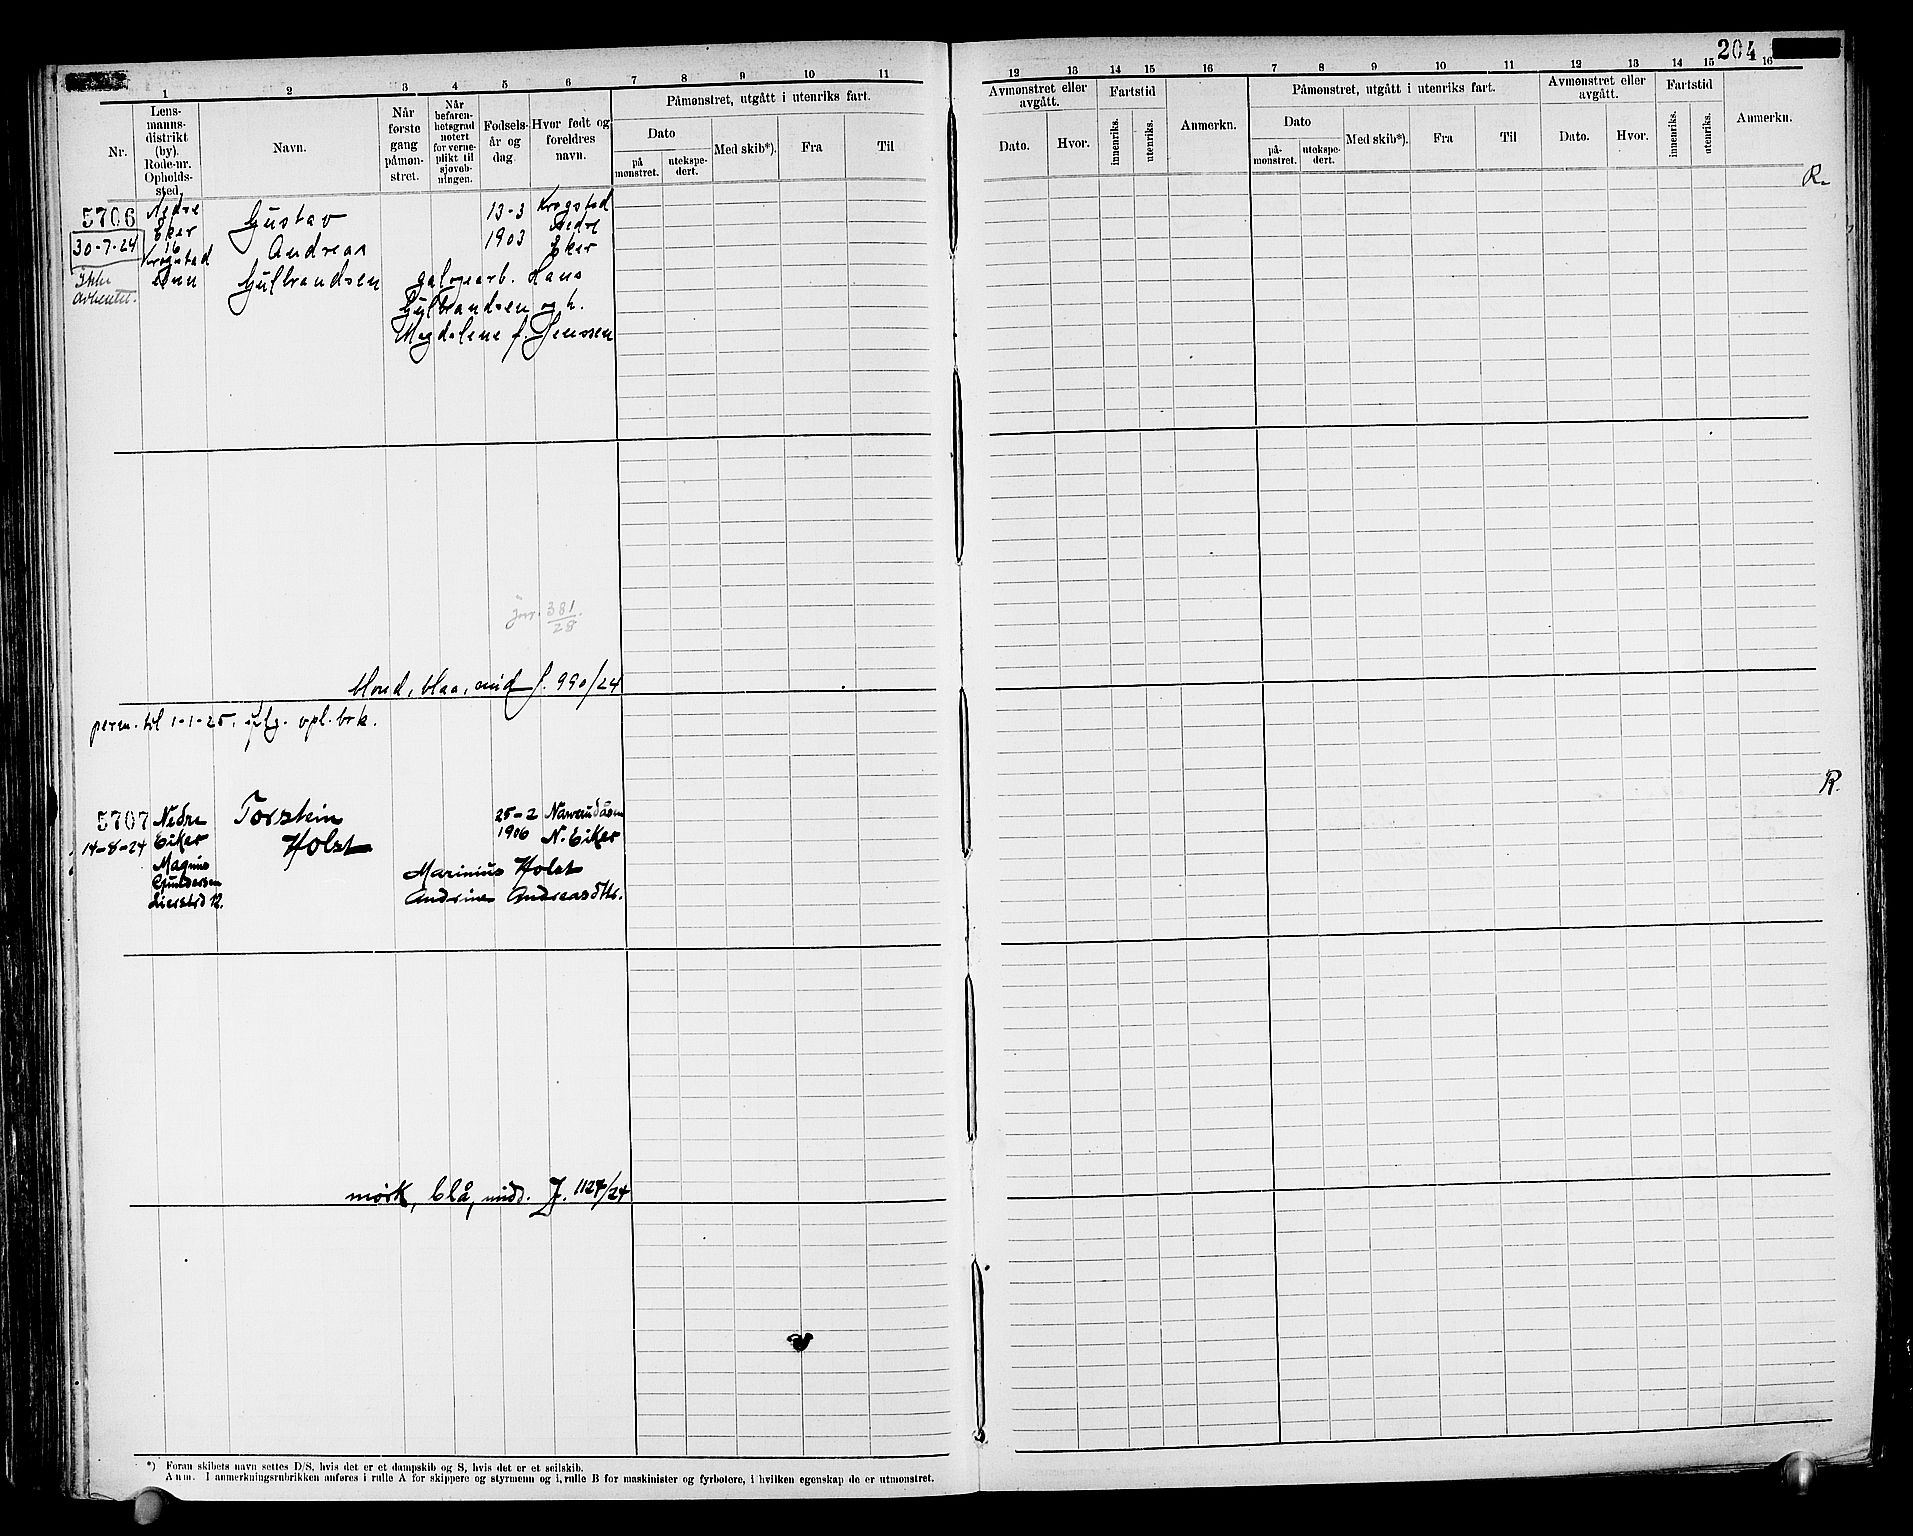 204
1 2 3 4 5 6 7 8 9 10 11
Nr.
Lens-
manns-
distrikt
(by).
Rode-nr.
Opholds-
sted.
Navn.
Når
første
gang
påmøn-
stret.
Når
befaren-
hetsgrad
notert
for verne-
plikt til
sjøvæb-
ningen.
Fødsels-
år og
dag.
Hvor født og
foreldres
navn.
Påmønstret, utgått i utenriks fart.
Dato
på
mønstret.
utekspe-
dert.
Med skib*).
Fra
Til
12 13 14 15 16 7 8 9 10 11 12 13 14 15 16
Avmønstret eller
avgått.
Dato.
Hvor.
Fartstid
innenriks.
utenriks.
Anmerkn.
Påmønstret, utgått i utenriks fart.
Dato
på-
mønstret.
utekspe-
dert.
Med skib*).
Fra
Til
Avmønstret eller
avgått.
Dato.
Hvor.
Fartstid
innenriks.
utenriks.
Anmerkn.
R.
5706
30-7-24
Ikke
avhentet.
Nedre
Eker
16
Krogstad
Gustav
Andreas
Gulbrandsen
13-3
1903
Krogstad
Nedre
Eker
galogearb. Hans
Gulbrandsen og h.
Magdalene f. Jenssen
Jnr. 381/28
blond, blaa, mid J. 990/24
perm. til 1-1-25. opl. brk.
R.
5707
14-8-24
Nedre
Eiker
Magnus
Gundersen
Lierstrd 12.
Torstein
Holst
25-2
1906
N. Eiker
Marinius Holst
Andrine Andreasdtr.
mørk, blå, midd. J. 1124/24
*) Foran skibets navn settes D/S, hvis det er et dampskib og S, hvis det er et seilskib.
Anm. I anmerkningsrubrikken anføres i rulle A for skippere og styrmenn og i rulle B for maskinister og fyrbøtere, i hvilken egenskap de er utmønstret.